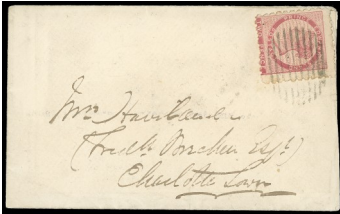 PRINCE
Mrs Haviland
(Fredk Brecken Esqr)
Charlotte Town